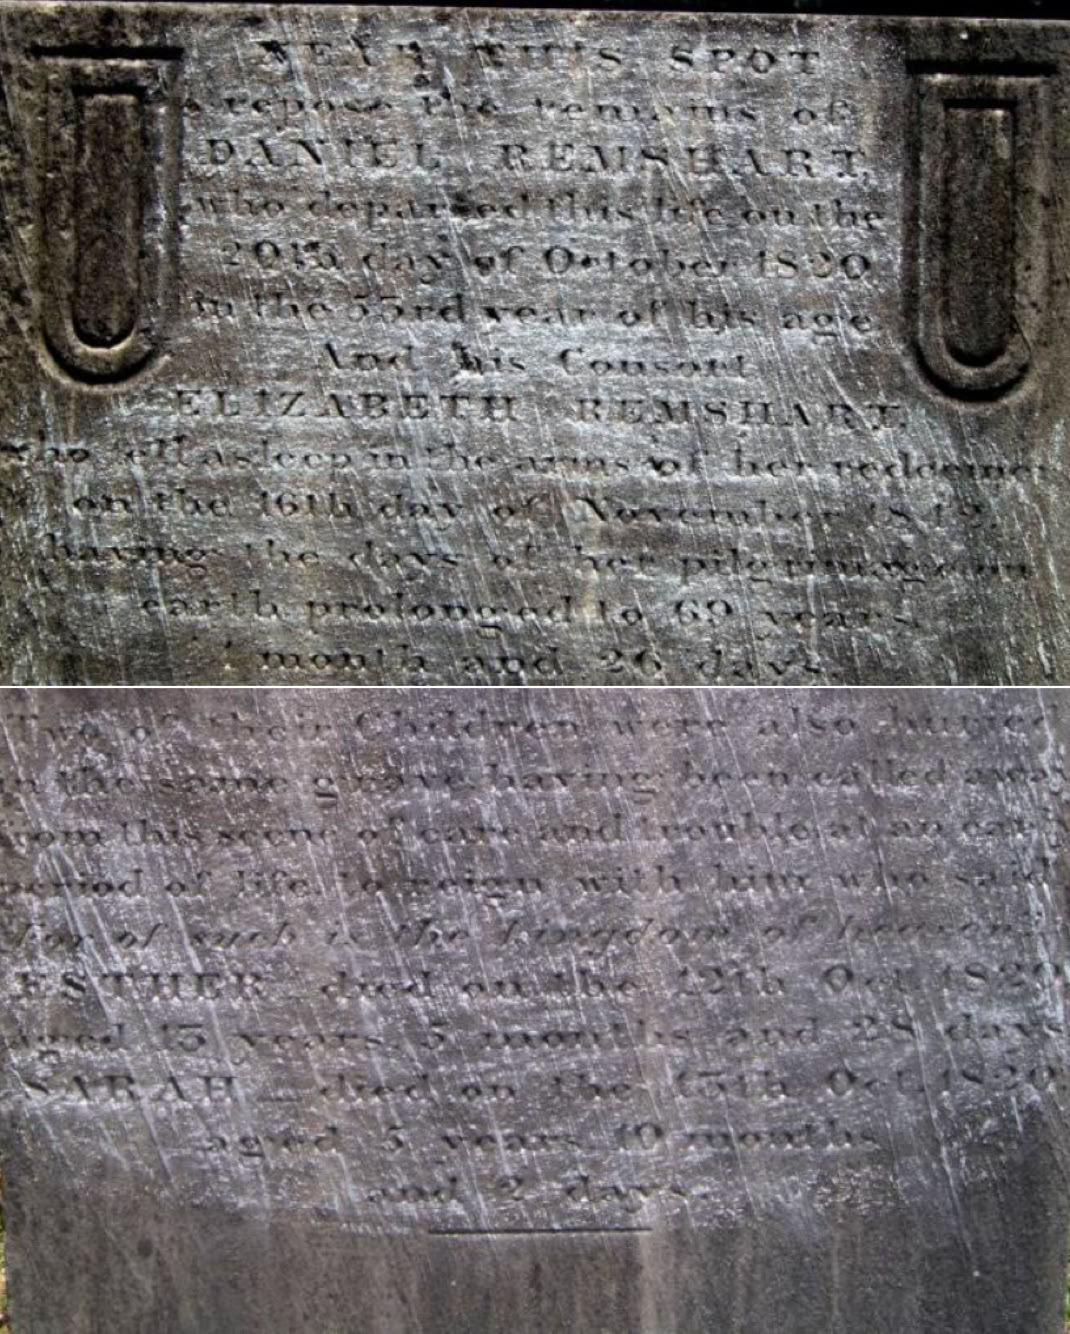 NEAR THIS SPOT
repose the remains of
DANIEL REMSHART,
who departed this life on the
20th day of October 1820
in the 53rd year of his age
And his Consort
ELIZABETH REMSHART,
who fell asleep in the arms of her redeemer
on the 16th day of November 1842,
having the days of her pilgrimage on
earth prolonged to 69 years,
month and 26 days.
Two of their Children were also buried
in the same grave, having been called away
from this scene of care and trouble at an early
period of life, to reign with him who said
For of such is the kingdom of heaven.
ESTHER died on the 12th Oct. 1820
aged 13 years, 5 months and 28 days
SARAH _ died on the 15th Oct. 1820
aged 5 years 10 months
and 2 days.